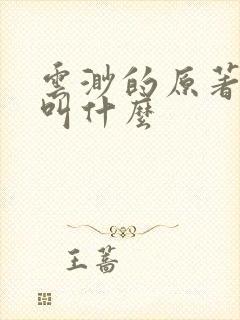 雲渺的原著
叫什麼
王蔷